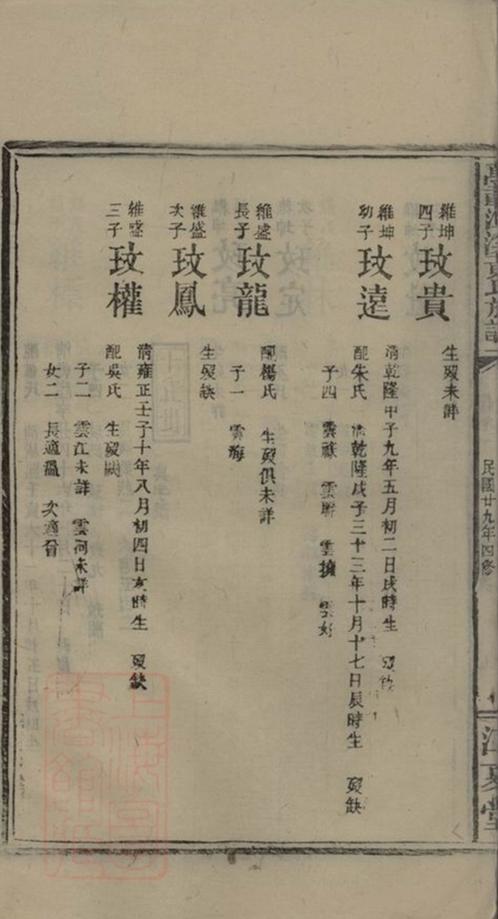 民國廿九年四修
江夏堂
維坤
四子
玟貴
生歿未詳
維坤
幼子
玟遠
清乾隆甲子九年五月初二日戌時生 歿
配朱氏 清乾隆戊子三十三年十月十七日辰時生 歿缺
子四 雲
維盛
長子
玟龍
配楊氏 生歿俱未詳
子一 雲海
維盛
次子
玟鳳
生歿缺
維盛
三子
玟權
清雍正壬子十年八月初四日亥時生 歿缺
配吳氏 生歿闕
子二 雲江未詳 雲河未詳
女二 長適溫 次適晉